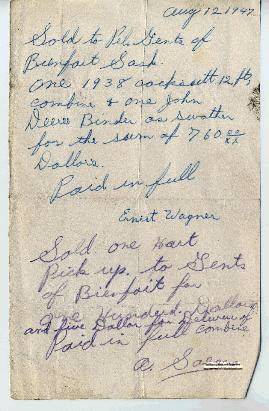 Aug 12 1947
Sold to Pete Gents of
Bienfait Sask.
one 1938 cockshutt 12 ft
combine & one John
Deere Binder as swather
for the sum of 760 00/xx
Dollars.
Paid in full
Ernest Wagner
Sold one Hart
Pick up. to Gents
of Bienfait for
One Hundred. Dollars
and five Dollar for return of
Paid in full combine